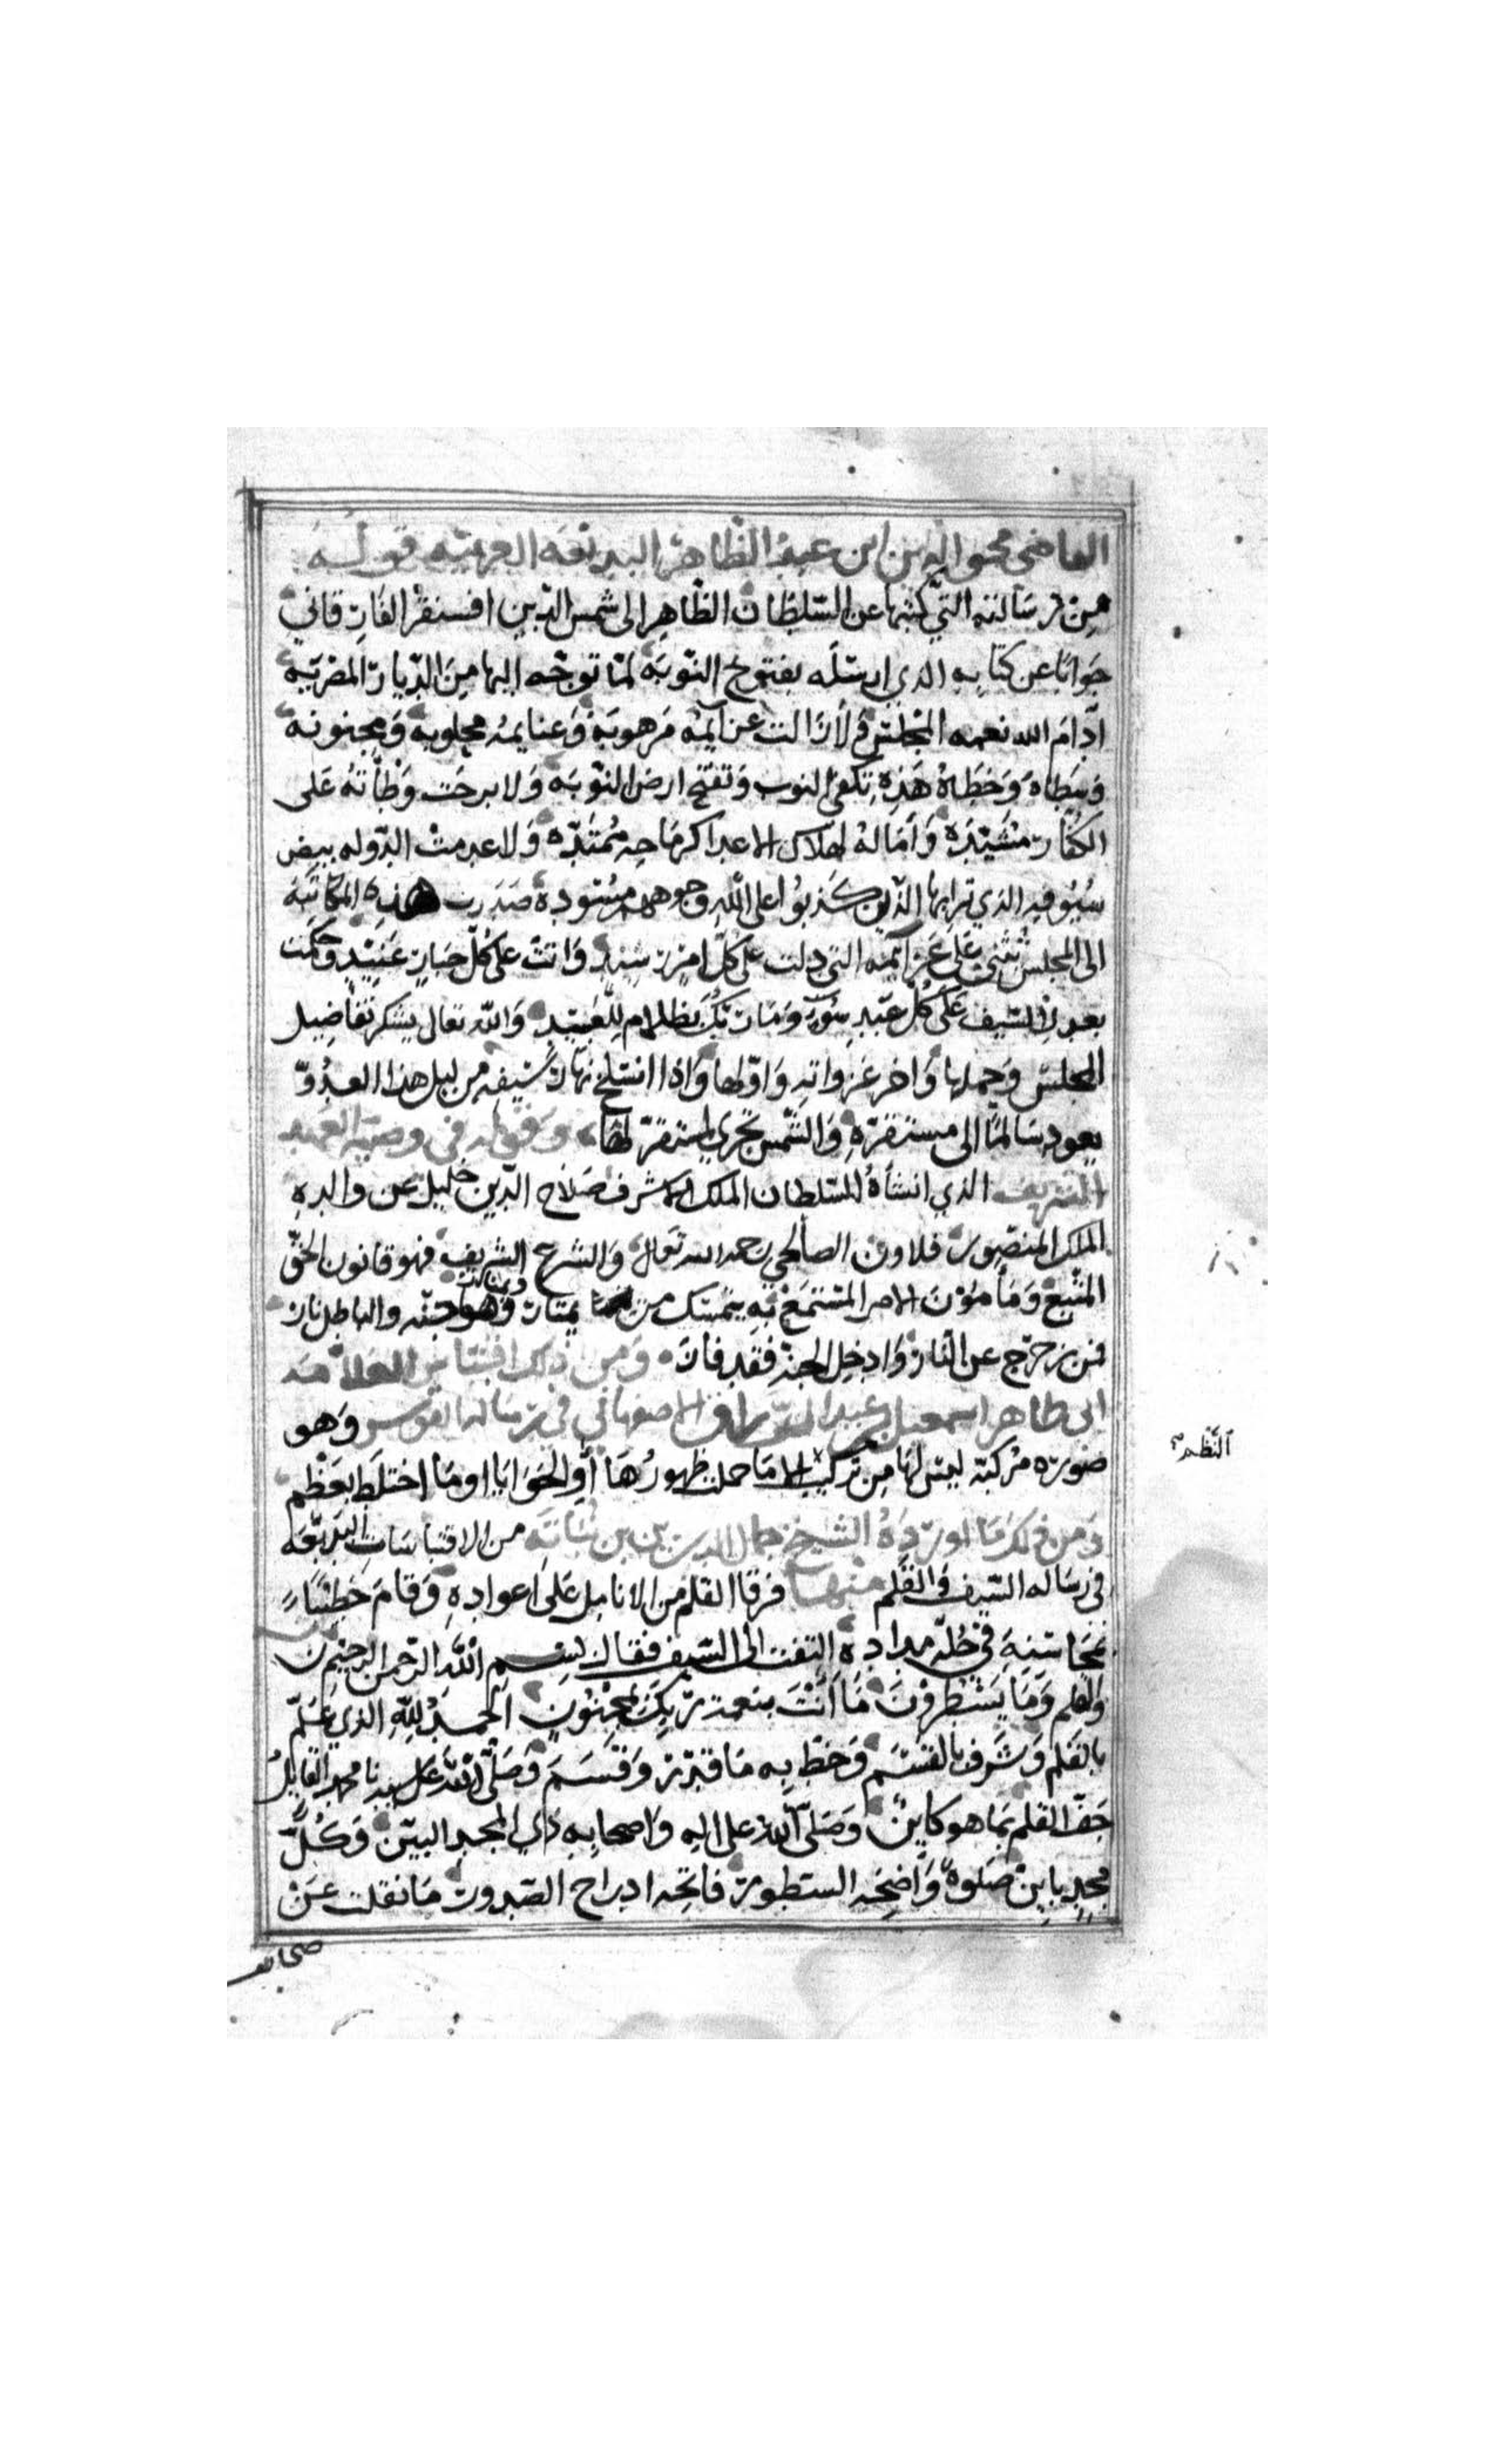 القاضي محيي الدين ابن عبد الظاهر البديعه الغريبه قوله
من رسالته التي كتبها عن السلطان الظاهر الى شمس الدين اقسنقر الفارقاني
جوابا عن كتابه الذي ارسله بفتوح النوبه لما توجه اليها من الديار المصريه
ادام الله نعمه المجلس ولا زالت عزايمه مرهوبه وغنايمه مجلوبه ومجنونه
وسطاه وخطاه هذه تكف النوب وتفتح ارض النوبه ولا برحت وطأته على
الكفار مشتده وآماله لهلاك الاعدا كرماحه ممتده ولا عدمت الدوله بيض
سيوفه الذي ترا بها الذين كذبوا على الله وجوههم مسوده صدرت هذه المكاتبه
الى المجلس تثني على عزايمه التي دلت على كل امر رشيد واتت على كل جبار عنيد وحكمت
بعدل السيف على كل عبد سوء وما ربك بظلام للعبيد والله تعالى يشكر تفاصيل
المجلس وجملها واخر غزواته واولها واذا انسلخ نهار سيفه من ليل هذا العدو
يعود سالما الى مستقره والشمس تجري لمستقر لها وقوله في وصيه العهد
الشريف الذي انشاه للسلطان الملك الاشرف صلاح الدين خليل عن والده
الملك المنصور قلاوون الصالحي رحمه الله تعالى والشرع الشريف فهو قانون الحق
المتبع ومامون الامر المستمع به يتمسك من يمتار وهو جنه والباطل نار
فمن زحزح عن النار وادخل الجنه فقد فاز ومن ذلك اقتباس العلامه
ابي طاهر اسمعيل بن عبد الرزاق الاصفهاني في رساله القوس وهو
صوره مركبه ليس لها من تركيب الا ما حملت ظهورها او الحوايا او ما اختلط بعظم
النظم
ومن ذلك ما اورده الشيخ جمال الدين بن نباته من الاقتباسات البديعه
في رساله السيف والقلم منها فرقا القلم من الانامل على اعواده وقام خطيبا
بمحاسنه في حله مداده التفت الى السيف فقال بسم الله الرحمن الرحيم ن
والقلم وما يسطرون ما انت بنعمة ربك بمجنون الحمد لله الذي علم
بالقلم وشرف بالقسم وخط به ما قدر وقسم وصلى الله على سيدنا محمد القايل
جف القلم بما هو كاين وصلى الله على اله واصحابه ذي المجد البين وكل
مجد باين صلوة واضحه السطور فاتحه ادراج الصدور ما نقلت عن
صحايف